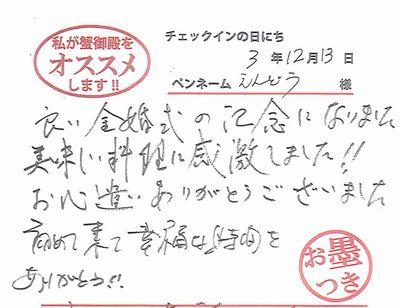 私が蟹御殿を
オススメ
します!!
チェックインの日にち
3年12月13日
ペンネーム えんどう 様
良い金婚式の記念になりました
美味しい料理に感激しました!!
お心遣いありがとうございました
初めて来て幸福な時間を
ありがとう!!
お墨
つき